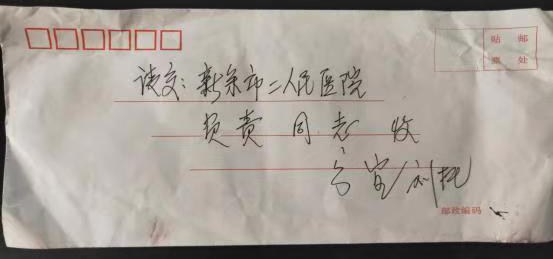 贴 邮
票 处
读交：新余市二人民医院
负责同志收
刘托
邮政编码